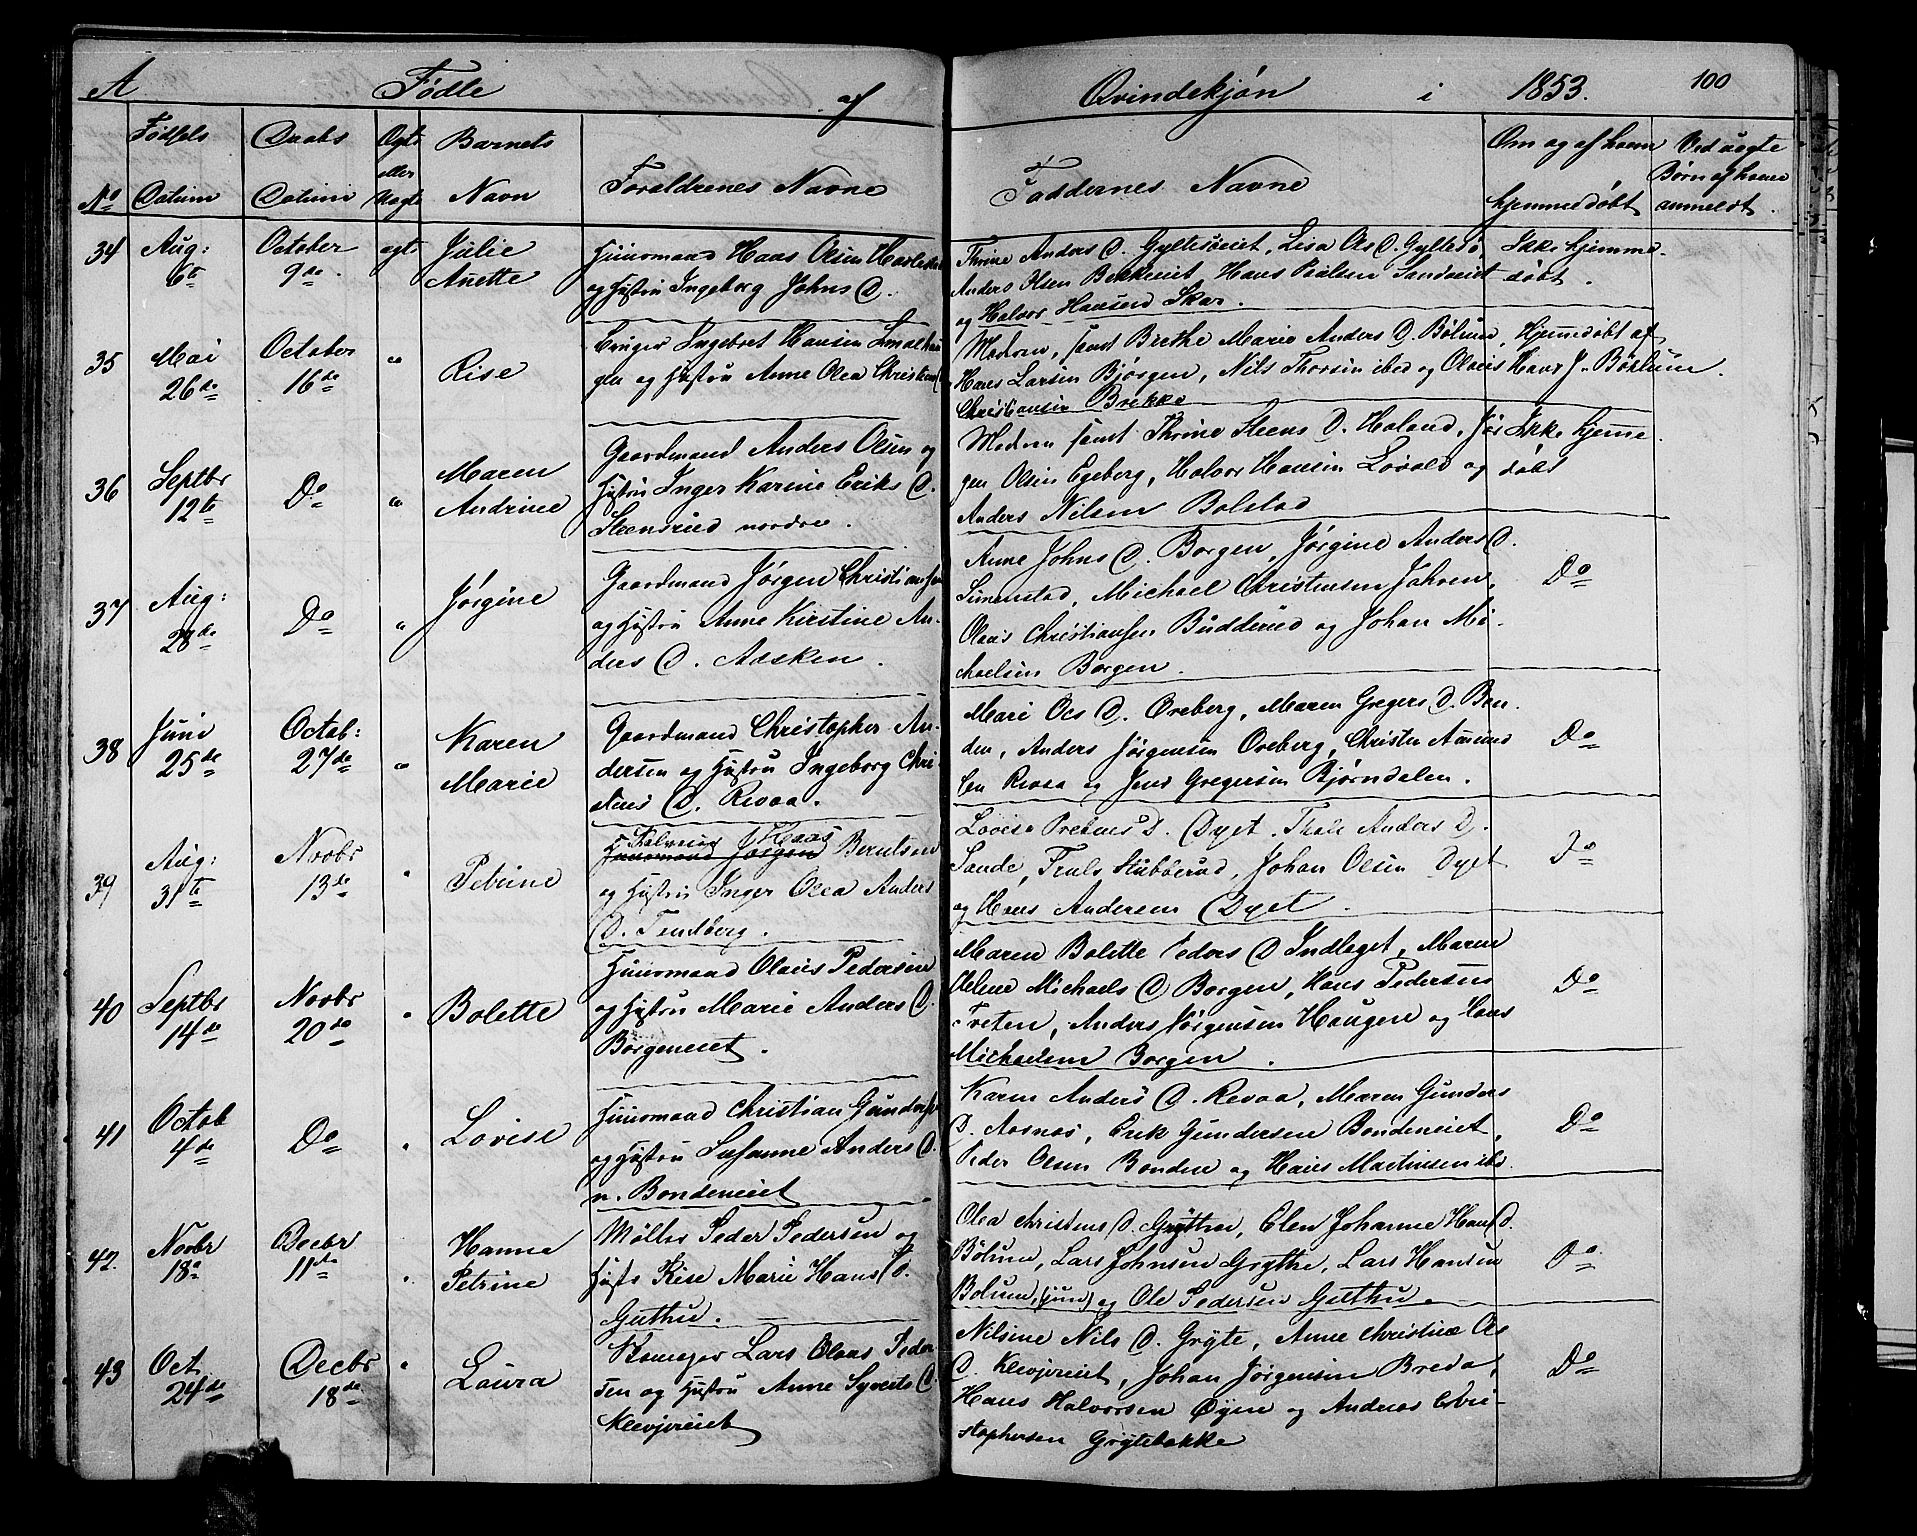 A Fødte af Qvindekjøn i 1853. 100
No
Fødsels Datum
Daabs Datum
Ægte eller Uægte
Barnets Navn
Forældrenes Navne
Faddernes Navne
Om og af hvem hjemmedøbt
Ved uægte Børn af hvem anmeldt.
34 Aug: 6te October 9de egte Julie Anette
Huusmand Hans Olsen
og Hustru Ingeborg Johns D.
Thrine Anders D. Gyltesøeiet, Lisa Ols D. Gyltesø,
Anders Olsen Brekkeiet, Hans Paulsen Sandveiet
og Halvor Hansen Skar.
Ikke hjemme
døbt.
35 Mai 26de October 16de " Rise
Bruger Ingebret Hansen
og Hustru Anne Olea Christens
Modren, samt Birthe Marie Anders D. Bølum,
Hans Larsen Bjørgen, Nils Thorsen ibed og Olaus
Christiansen Brekke
Hjemedøbt af
Hans J. Børlum.
36 Septbr 12te Do " Maren Andrine
Gaardmand Anders Olsen og
Hustru Inger Karine Eriks D.
Steensrud nordre.
Modren samt Thrine Steens D. Holand, Jør
gen Olsen Egeberg, Halvor Hansen Lovald og
Anders Nilsen Bolstad
Ikke hjeme
døbt
37 Aug: 28de Do " Jørgine
Gaardmand Jørgen Christiansen
og Hustru Anne Kirstine An-
ders D. Adsken.
Anne Johns D. Borgen, Jørgine Anders D.
Simenstad, Michael Christensen Jahren,
Olaus Christiansen Budderud og Johan Mi-
chaelsen Borgen.
Do
38 Juni 25de Octob: 27de " Karen Marie
Gaardmand Christopher An-
dersen og Hustru Ingeborg Chri-
stens D. Revaa.
Mari Ols D. Oreberg, Maren Gregers D. Bon
den, Anders Jørgensen Oreberg, Christen Amund
sen Revaa og Jens Gregersen Bjørndalen.
Do
39 Aug: 31te Novbr 13de " Petrine
Hans
Huusmand Jørgen Berntsen
og Hustru Inger Olea Anders
D. Tandberg.
Lovise Prebens D. Dyet. Thale Anders D.
Sande, Truls Stubberud, Johan Olsen Dyet
og Hans Andersen Dyet.
Do
40 Septbr 14de Novbr 20de " Bolette
Huusmand Olaus Pedersen
og Hustru Marie Anders D.
Borgeneiet.
Maren Bolette Peders D Indlaget, Maren
Helene Michaels D Borgen, Hans Pedersen
Treten, Anders Jørgensen Haugen og Hans
Michaelsen Borgen.
Do
41 Octob 4de Do " Lovise
Huusmand Christian Gundersen
og Hustru Susanne Anders D.
n. Bondeneiet
Karen Anders D. Revaa, Maren Gunders
D. Aasnæs, Erik Gundersen Bondeneiet,
Peder Olsen Bonden og Hans Martinsen ibd.
Do
42. Novbr 18de Decbr 11te " Hanna Petrine
Møller Peder Pedersen og
Hustr Rise Marie Hans D.
Guthu.
Olea Christens D. Grythe, Elen Johanne Hans D.
Bölum, Lars Johnsen Grythe, Lars Hansen
Bolum, (jun) og Ole Pedersen Guthu.
Do.
43 Oct 24de Decbr 18de " Laura
Skomager Lars Olaus Peder
sen og Hustru Anne Syverts D.
Klevjereiet
Nilsine Nils D. Gryte, Anne Christine Ols
D. Klevjereiet, Johan Jørgensen Breda,
Hans Halvorsen Øyen og Andreas Chri-
stophersen Grytebakke
Do